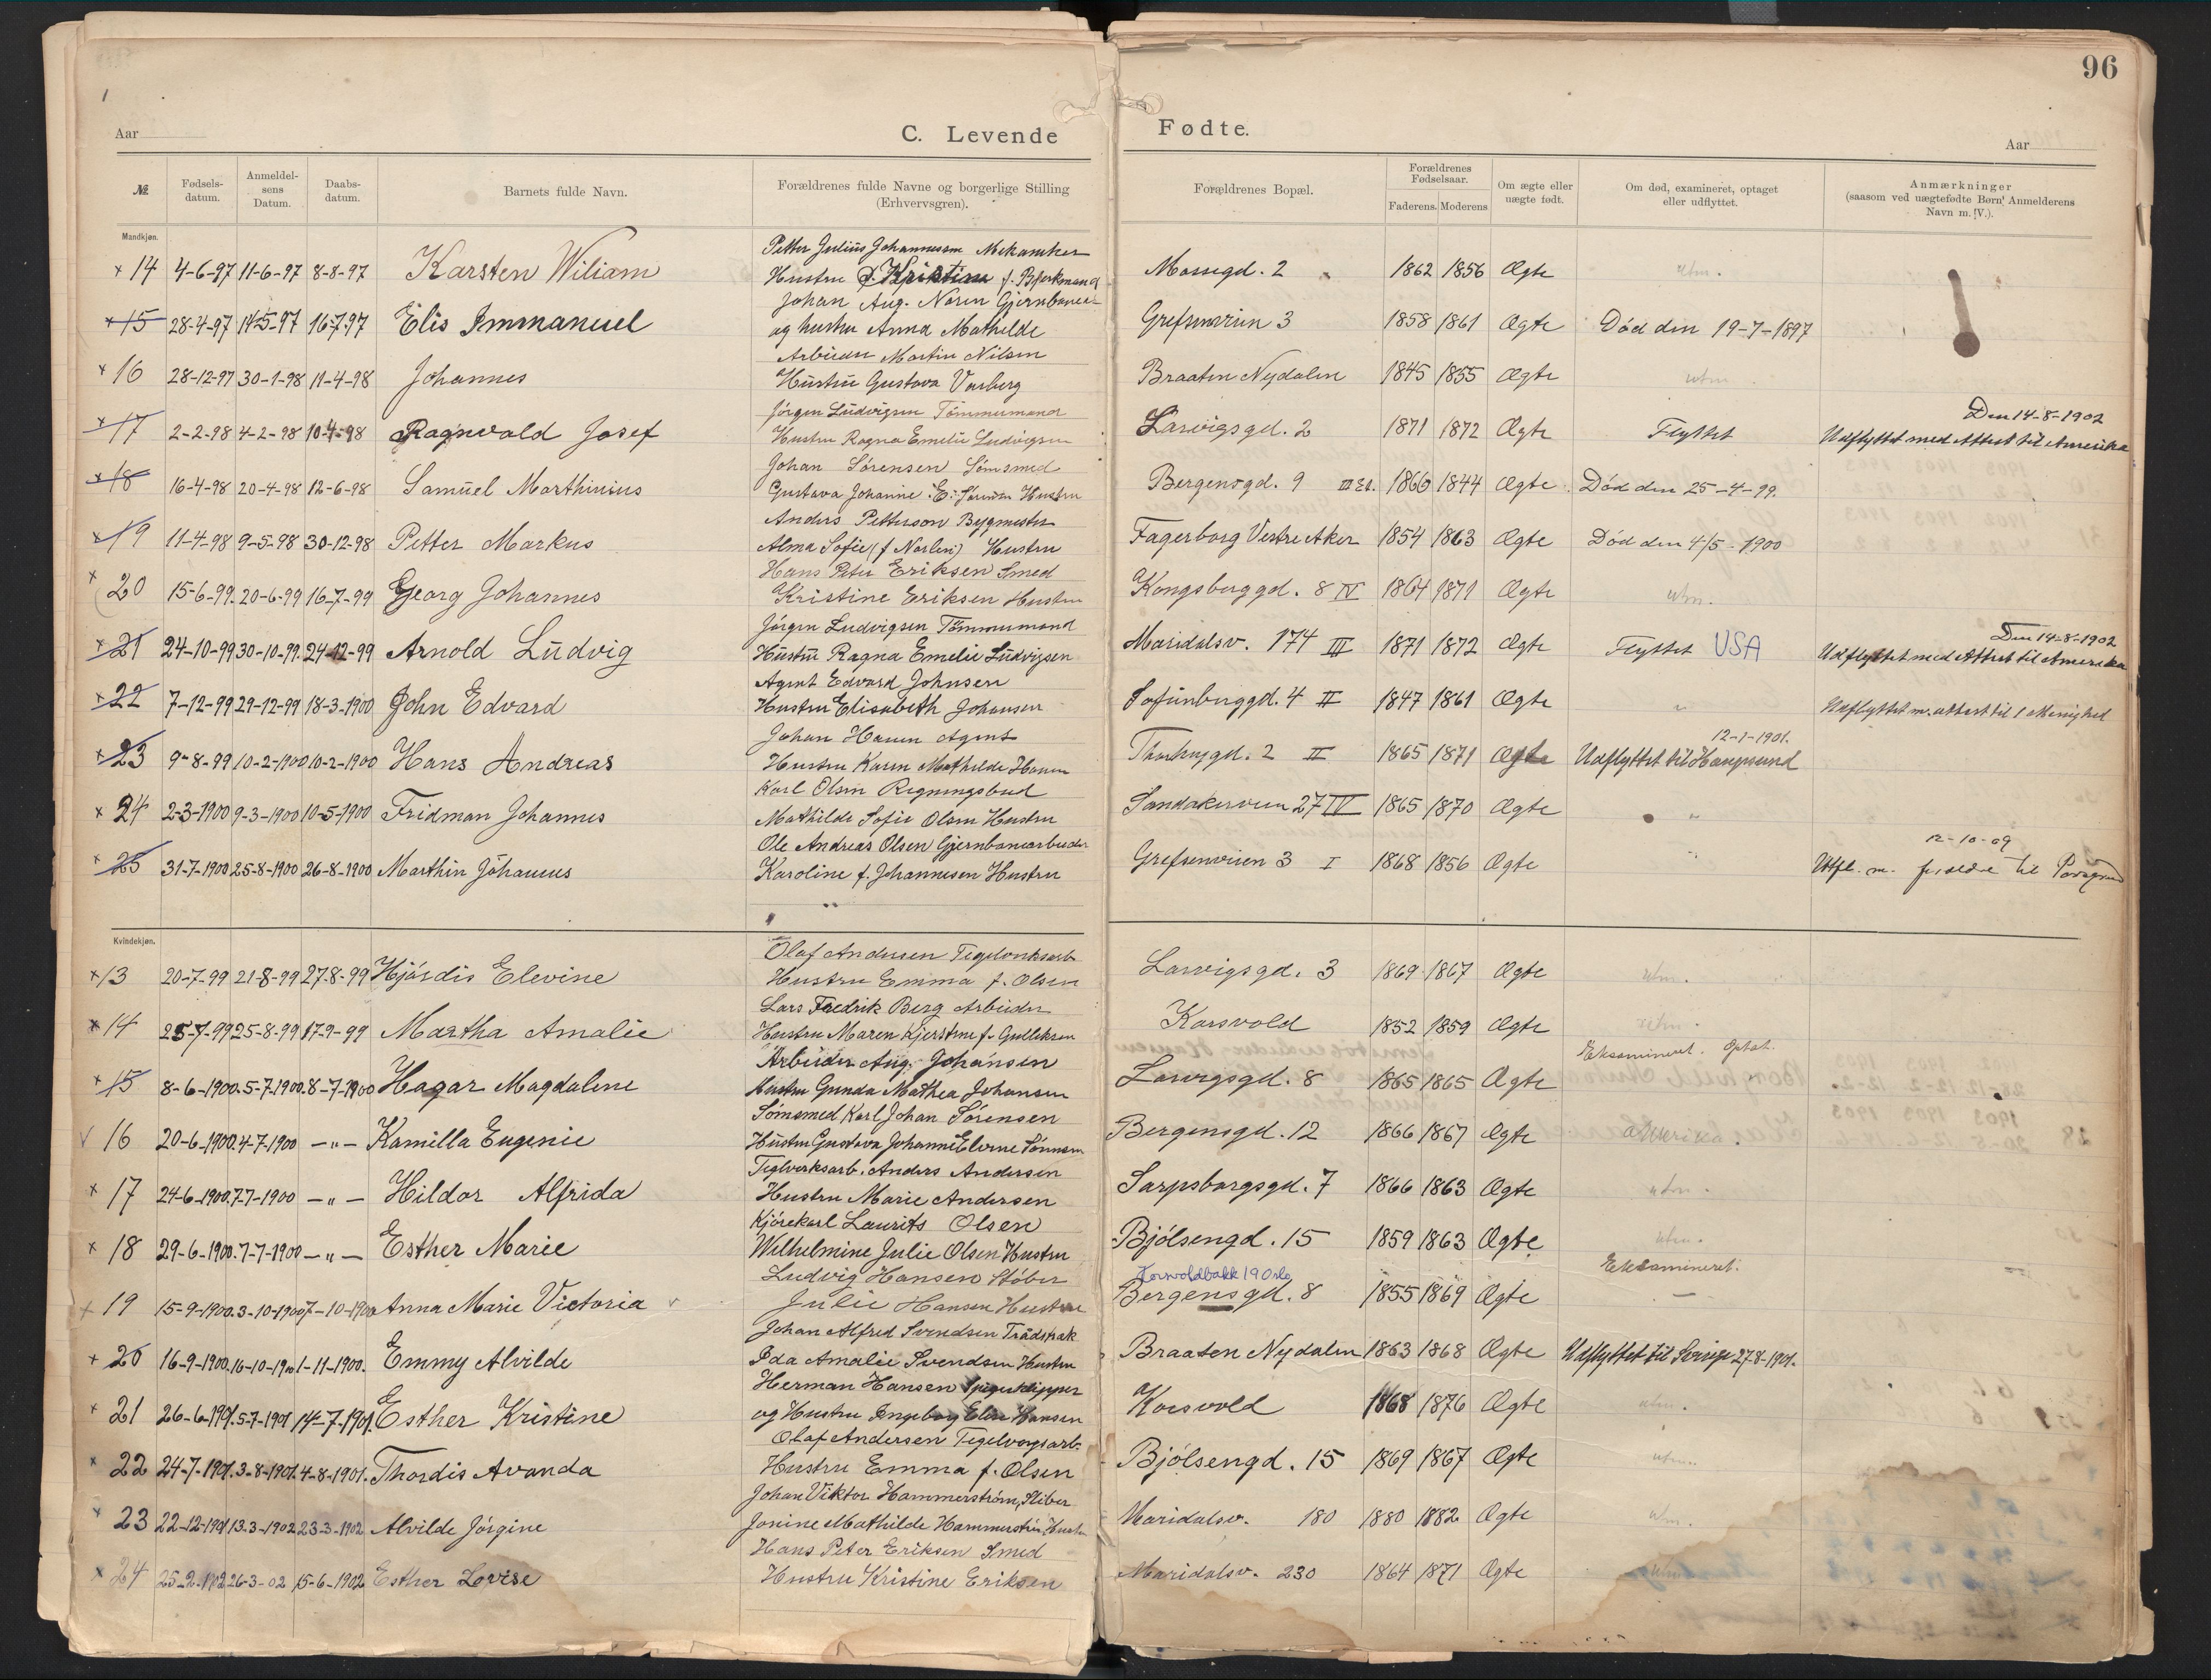 96
Aar
C. Levende
Fødte.
Aar
№
Fødselsdatum.
Anmeldelsens Datum.
Daabsdatum.
Barnets fulde Navn.
Forældrenes fulde Navne og borgerlige Stilling (Erhvervsgren).
Forældrenes Bopæl.
Forældrenes Fødselsaar.
Faderens. Moderens
Om ægte eller uægte født.
Om død, examineret, optaget eller udflyttet.
Anmærkninger (saasom ved uægtefødte Børn Anmelderens Navn m. V.).
Mandkjøn.
Petter Julius Johannessen Mekaniker
× 14 4-6-97 11-6-97 8-8-97 Karsten Wiliam Hustru Kristine f. Bjerkmand Mossegd. 2 1862 1856 Ægte utm.
Johan Aug. Noren Gjernbanear-
× 15 28-4-97 14-5-97 16-7-97 Elis Immanuel og hustru Anna Mathilde Grefsenveien 3 1858 1861 Ægte Død den 19-7-1897
Arbeider Martin Nilsen
× 16 28-12-97 30-1-98 11-4-98 Johannes Hustru Gustava Varberg Braaten Nydalen 1845 1855 Ægte utm.
Jørgen Ludvigsen Tømmermand Den 14-8-1902
× 17 2-2-98 4-2-98 10-4-98 Ragnvald Josef Hustru Ragna Emelie Ludvigsen Larvigsgd. 2 1871 1872 Ægte Flyttet Udflyttet med Attest til Amerika
Johan Sørensen Sømsmed
× 18 16-4-98 20-4-98 12-6-98 Samuel Marthinius Gustava Johanne E. Sørensen Hustru Bergensgd. 9 III Et. 1866 1844 Ægte Død den 25-4-99.
Anders Petterson Bygmester
× 19 11-4-98 9-5-98 30-12-98 Petter Markus Alma Sofie (f Norlen) Hustru Fagerborg Vestre Aker 1854 1863 Ægte Død den 4/5-1900
Hans Peter Eriksen Smed
× 20 15-6-99. 20-6-99 16-7-99 Georg Johannes Kristine Eriksen Hustru Kongsberggd. 8 IV 1864 1871 Ægte utm.
Jørgen Ludvigsen Tømmermand Den 14-8-1902
× 21 24-10-99 30-10-99. 24-12-99 Arnold Ludvig Hustru Ragna Emelie Ludvigsen Maridalsv. 174 III 1871 1872 Ægte Flyttet USA Udflyttet med Attest til Amerika
Agent Edvard Johnsen
× 22 7-12-99 29-12-99 18-3-1900 John Edvard Hustru Elisabeth Johansen Sofienberggd. 4 II 1847 1861 Ægte " Udflyttet m. attest til 1 Menighed
Johan Hansen Agent 12-1-1901.
× 23 9-8-99 10-2-1900 10-2-1900 Hans Andreas Hustru Karen Mathilde Hansen 2 II 1865 1871 Ægte Udflyttet til Haugesund
Karl Olsen Regningsbud
× 24 2-3-1900 9-3-1900 10-5-1900 Fridman Johannes Mathilde Sofie Olsen Hustru Sandakerveien 27 IV 1865 1870 Ægte "
Ole Andreas Olsen Gjernbanearbeider 12-10-09
× 25 31-7-1900 25-8-1900 26-8-1900 Marthin Johannes Karoline f. Johannesen Hustru Grefsenveien 3 I 1868 1856 Ægte " Utfl. m. foreldre til Porsgrund
Kvindekjøn.
Olaf Andersen Tegelverksarb
× 13 20-7-99 21-8-99 27-8-99 Hjørdis Elevine Hustru Emma f. Olsen Larvigsgd. 3 1869 1867 Ægte utm.
Lars Fredrik Berg Arbeider
× 14 25-7-99 25-8-99 17-9-99 Martha Amalie Hustru Maren Kjerstine f. Gulleksen Korsvold 1852 1859 Ægte utm.
Arbeider Aug. Johansen Eksamineret. Optat.
× 15 8-6-1900. 5-7-1900. 8-7-1900 Hagar Magdalene Hustru Gunda Mathea Johansen Larvigsgd. 8 1865 1865 Ægte "
Sømsmed Karl Johan Sørensen
16 20-6-1900. 4-7-1900 -"- Kamilla Eugenie Hustru Gustava Johanne Bergensgd. 12 1866 1867 Ægte Amerika.
Teglverksarb. Anders Andersen
× 17 24-6-1900. 7-7-1900 -"- Hildor Alfrida Hustru Marie Andersen Sarpsborgsgd. 7 1866 1863 Ægte utm.
Kjørekarl Laurits Olsen
× 18 29-6-1900. 7-7-1900 -"- Esther Marie Wilhelmine Julie Olsen Hustru Bjølsengd. 15 1859 1863 Ægte utm.
Ludvig Hansen Støber Korsvoldbakk 19 Oslo Eksamineret.
× 19 15-9-1900. 3-10-1900 7-10-1900 Anna Marie Victoria Julie Hansen Hustru Bergensgd. 8 1855 1869 Ægte -
Johan Alfred Svendsen Trådtrak
× 20 16-9-1900. 16-10-1900 1-11-1900. Emmy Alvilde Ida Amalie Svendsen Hustru Braaten Nydalen 1863 1868 Ægte Udflyttet til Sverige 27-8-1901.
Herman Hansen Spigerklipper
× 21 26-6-1901. 5-7-1901 14-7-1901. Esther Kristine og Hustru Ingeborg Elise Hansen Korsvold 1868 1876 Ægte utm.
Olaf Andersen Tegelvergsarb.
× 22 24-7-1901. 3-8-1901. 4-8-1901. Thordis Avanda Hustru Emma f. Olsen Bjølsengd. 15 1869 1867 Ægte utm.
Johan Viktor Hammerstrøm, Sliber
× 23 22-12-1901 13-3-1902 23-3-1902 Alvilde Jørgine Jonine Mathilde Hammerstrøm, Hustru Maridalsv. 180 1880 1882 Ægte utm.
Hans Peter Eriksen Smed
× 24 25-2-1902 26-3-02 15-6-1902 Esther Lovise Hustru Kristine Eriksen Maridalsv. 230 1864 1871 Ægte utm.